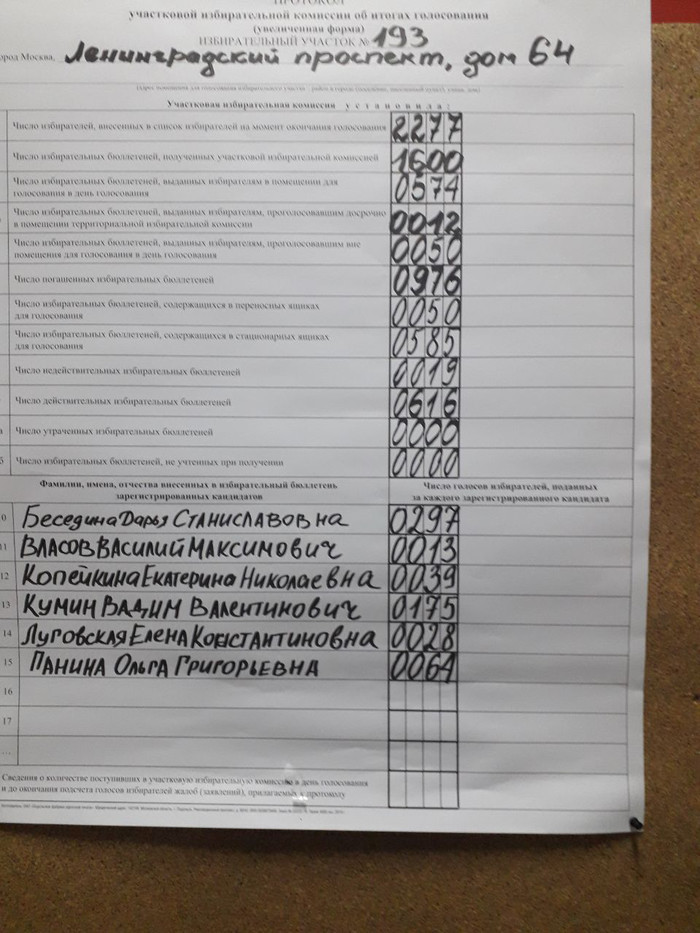 ПРОТОКОЛ
участковой избирательной комиссии об итогах голосования
(увеличенная форма)
ИЗБИРАТЕЛЬНЫЙ УЧАСТОК № 193
город Москва, Ленинградский проспект, дом 64
Участковая избирательная комиссия установила:
Число избирателей, внесенных в список избирателей на момент окончания голосования 2277
Число избирательных бюллетеней, полученных участковой избирательной комиссией 1600
Число избирательных бюллетеней, выданных избирателям в помещении для
голосования в день голосования 0574
Число избирательных бюллетеней, выданных избирателям, проголосовавшим досрочно
в помещении территориальной избирательной комиссии 0012
Число избирательных бюллетеней, выданных избирателям, проголосовавшим вне
помещения для голосования в день голосования 0050
Число погашенных избирательных бюллетеней 0976
Число избирательных бюллетеней, содержащихся в переносных ящиках
для голосования 0050
Число избирательных бюллетеней, содержащихся в стационарных ящиках
для голосования 0585
Число недействительных избирательных бюллетеней 0019
Число действительных избирательных бюллетеней 0616
а Число утраченных избирательных бюллетеней 0000
б Число избирательных бюллетеней, не учтенных при получении 0000
Фамилии, имена, отчества внесенных в избирательный бюллетень
зарегистрированных кандидатов
Число голосов избирателей, поданных
за каждого зарегистрированного кандидата
0 Беседина Дарья СТАНИСЛАВОВна 0297
11 ВЛАСОВ ВАСИЛИЙ МАКСИМОВИЧ 0013
12 Копейкина Екатерина Николаевна 0039
13 Кумин Вадим Валентинович 0175
14 Луговская Елена Константиновна 0028
15 ПАНИНА Ольга Григорьевна 0064
16
17
...
Сведения о количестве поступивших в участковую избирательную комиссию в день голосования
и до окончания подсчета голосов избирателей жалоб (заявлений), прилагаемых к протоколу